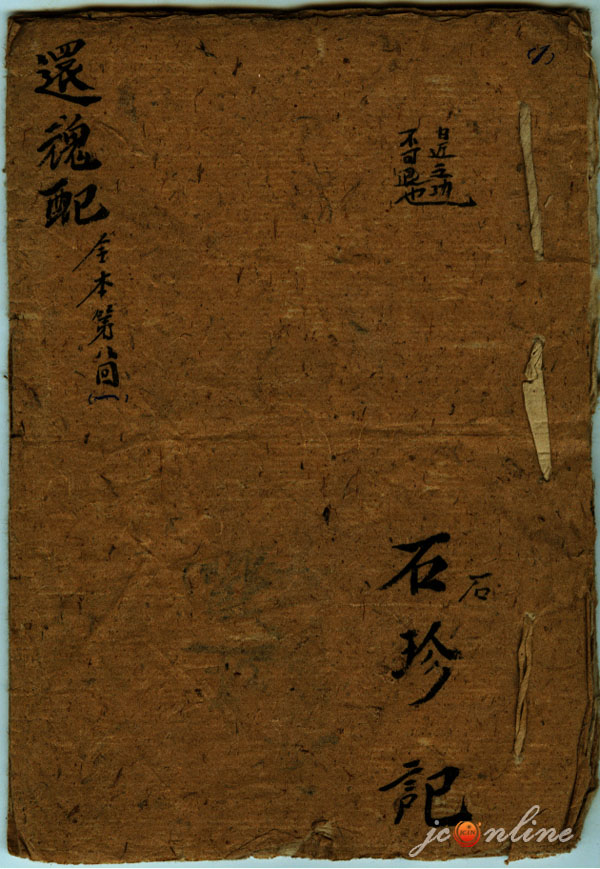 還魂配
全本第八回
(一)
日近之功
不可退也
石珍記
石
jconline